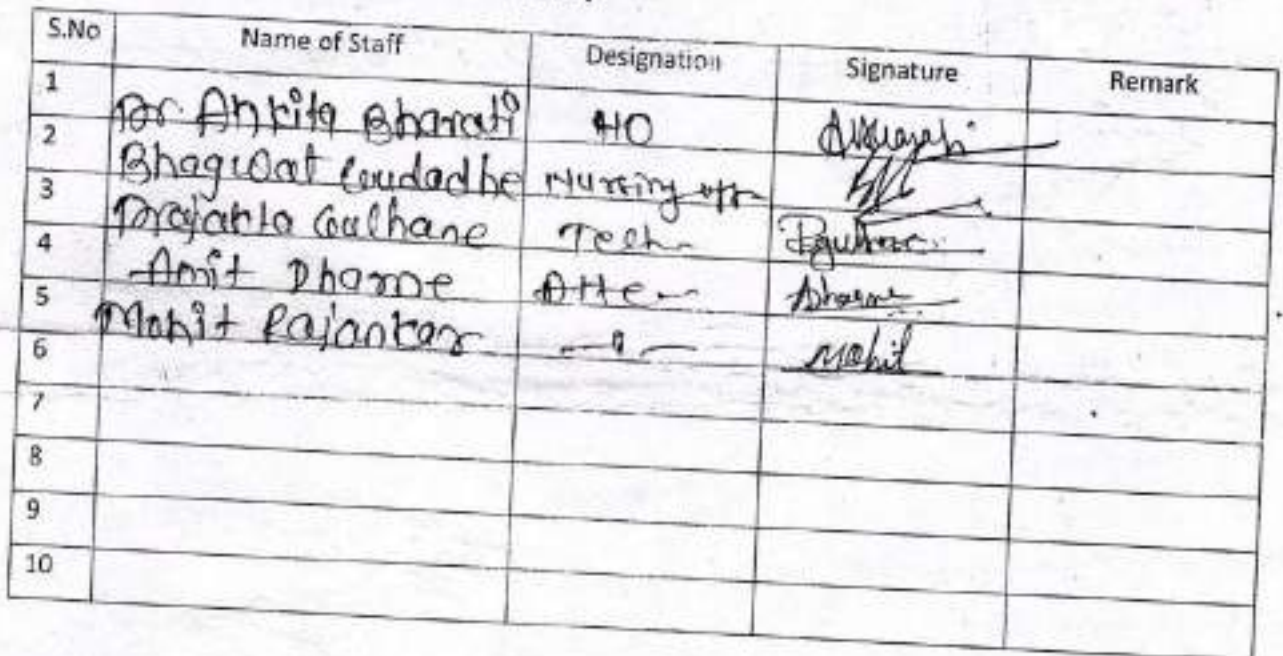 S.No Name of Staff Designation Signature Remark
1 Dr. Ankita Bharati HO
2 Bhagwat Goudadhe Nursing off
3 Prajakta Gulhane Tech Pgulhane
4 Amit Dharme Atte Dharme
5 Mohit Rajankar —"— Mohit
6
7
8
9
10